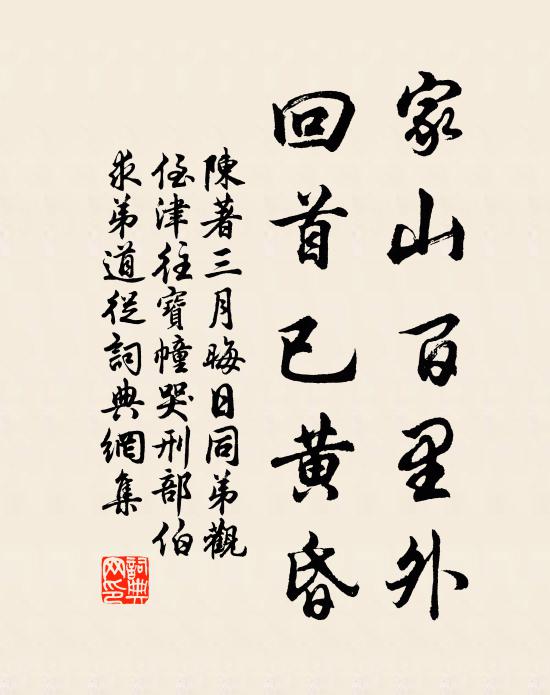 家山百里外
回首已黄昏
陳著三月晦日同弟觀
侄津往寶幢哭刑部伯
求弟道從詞典網集
詞典
网印